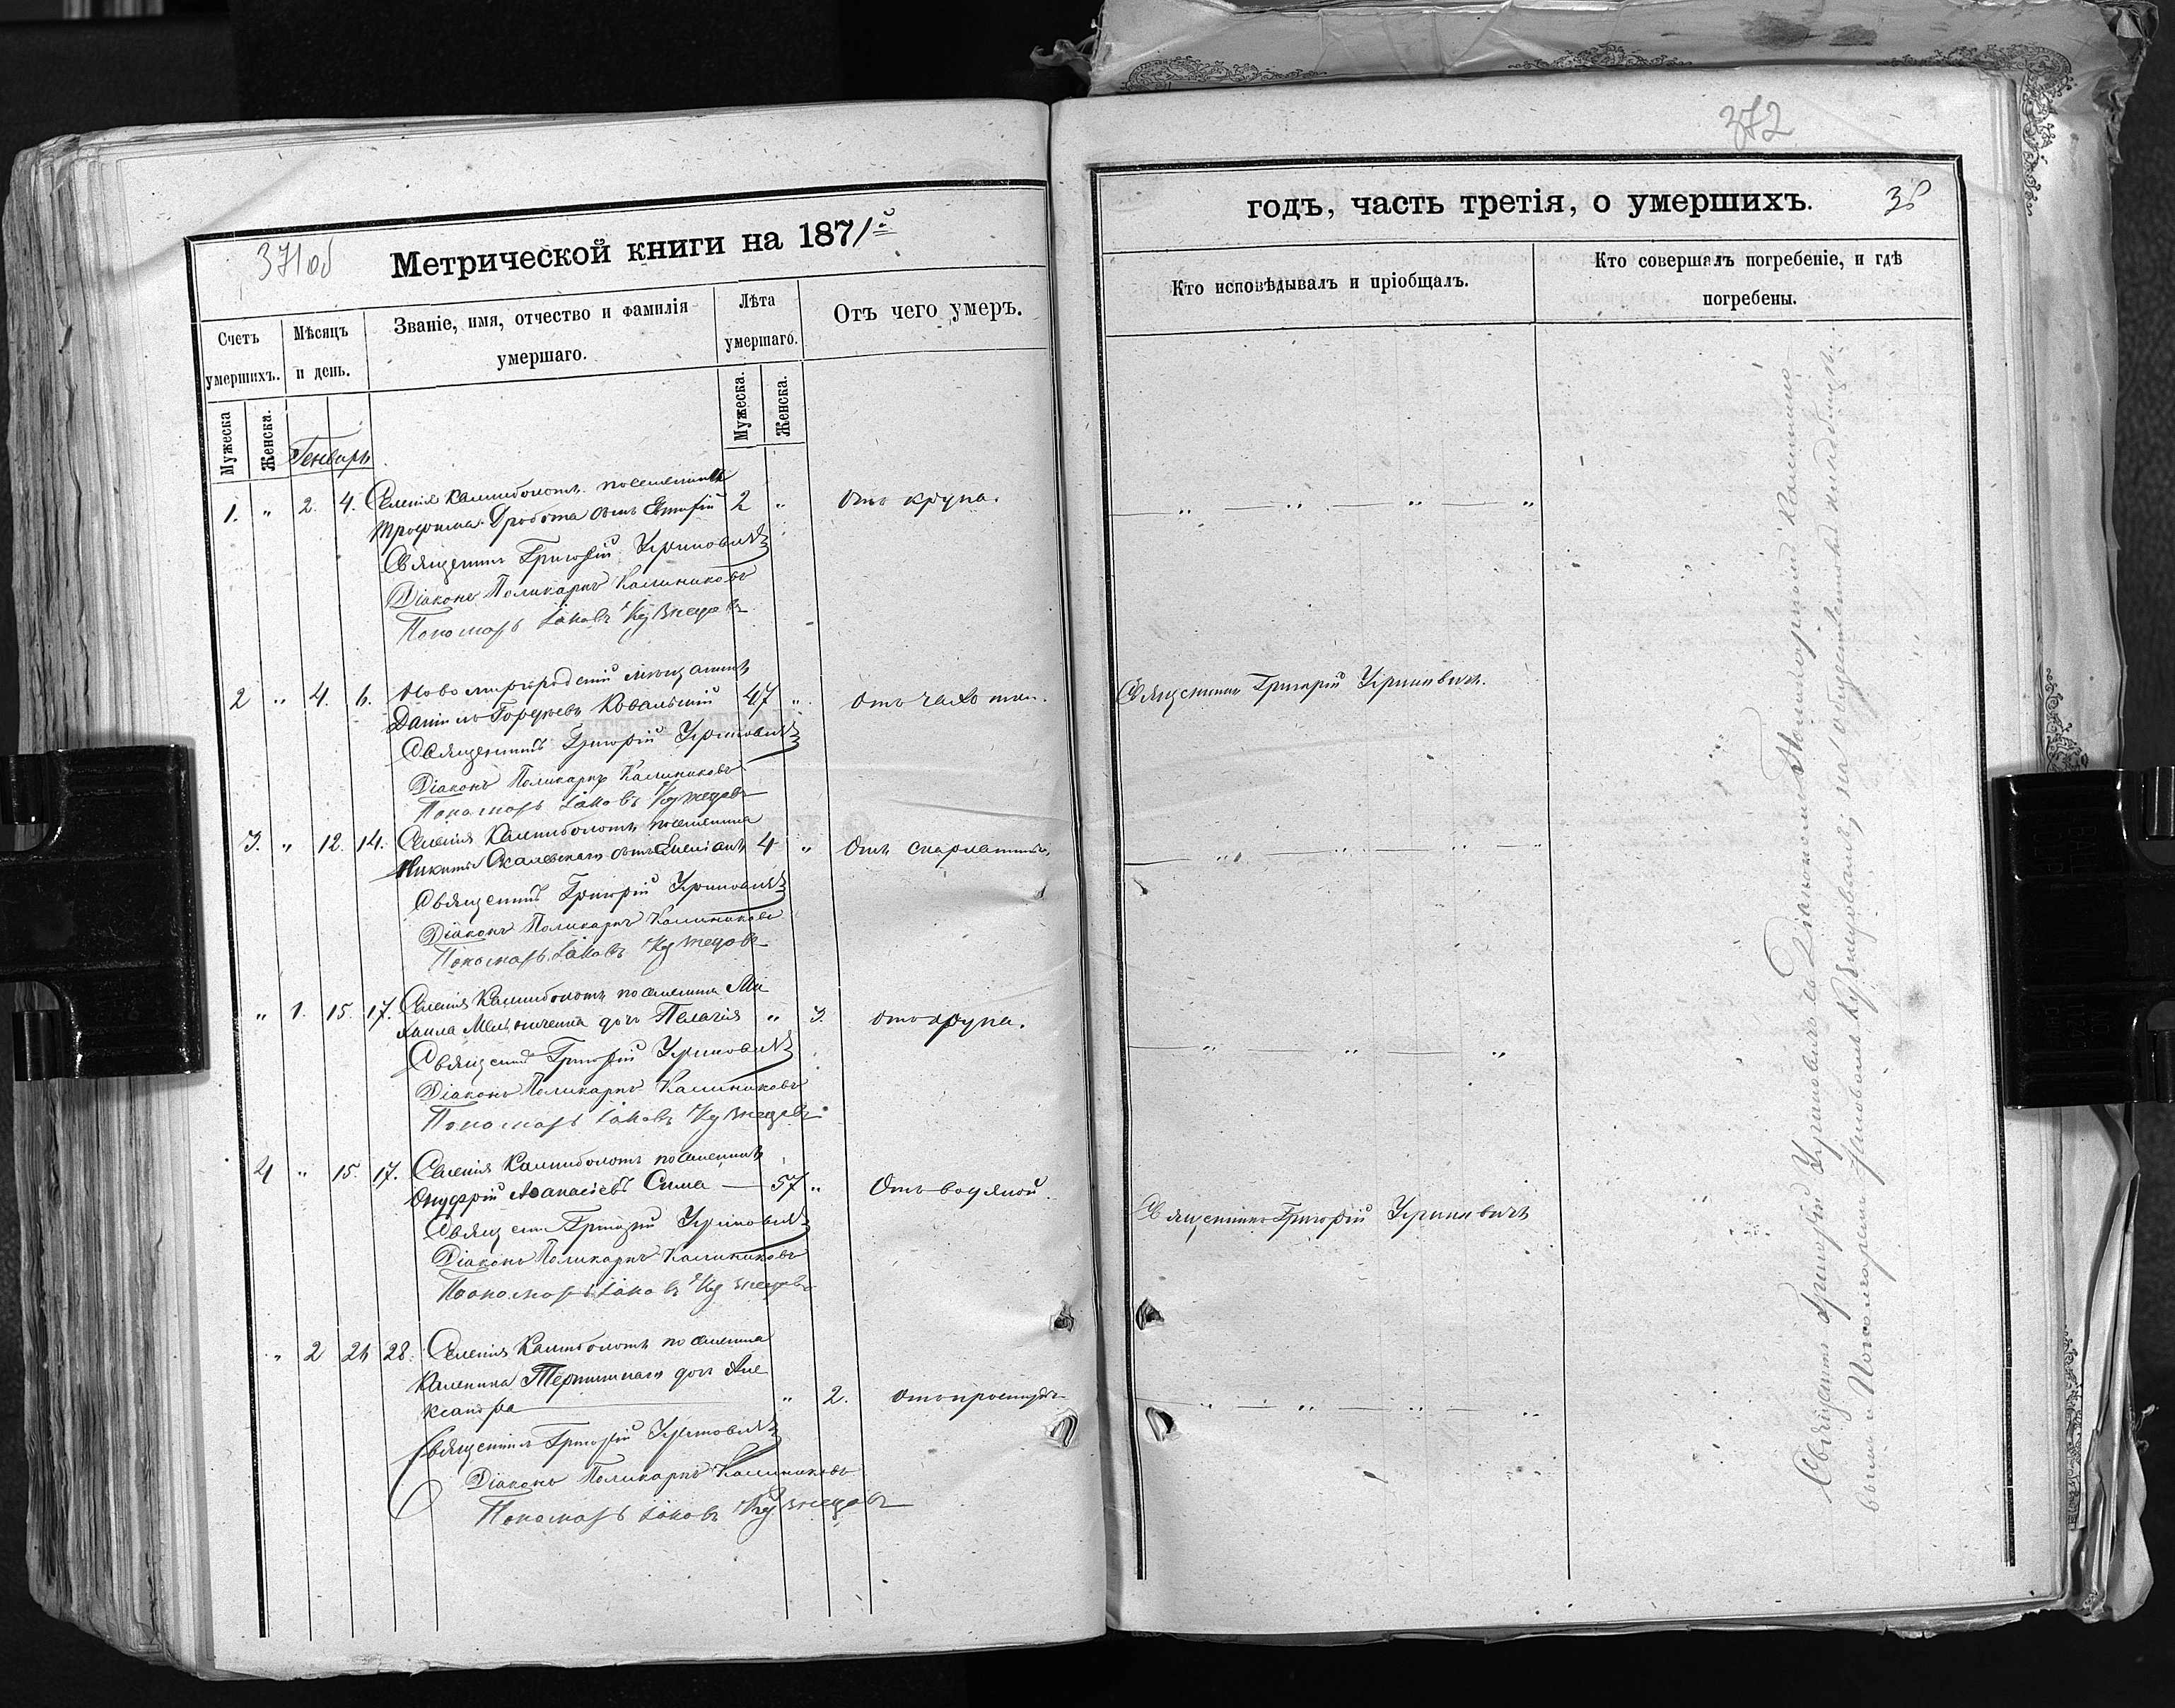 371об
Метрической книги на 1871й
Счетъ умершихъ.
Мѣсяцъ и день.
Званіе, имя, отчество и фамилія умершаго.
Лѣта умершаго.
Отъ чего умеръ.
Мужеска
Женска.
Мужеска.
Женска.
Генварь
1. " 2. 4. Селенія Калниболотъ поселянина 
Трофима Дробота сынъ 2 " Отъ крупа.
Священникъ Григорій Уриновичъ
Діаконъ Поликарпъ Калиниковъ
Пономарь Іаковъ Кузнецовъ
2 " 4. 6. Новомиргородскій мѣщанинъ
Даніилъ Ковальскій 47 " Отъ чахотки.
Священникъ Григорій Уриновичъ
Діаконъ Поликарпъ Калиниковъ
Пономарь Іаковъ Кузнецовъ
3. " 12. 14. Селенія Калниболотъ поселянина
Никиты Скалевскаго сынъ 4 " Отъ скарлатины,
Священникъ Григорій Уриновичъ
Діаконъ Поликарпъ Калиниковъ
Пономарь Іаковъ Кузнецовъ
" 1. 15. 17. Селенія Калниболотъ поселянина Ми
хаила Мельниченка дочь Пелагія " 3. Отъ крупа.
Священникъ Григорій Уриновичъ
Діаконъ Поликарпъ Калиниковъ
Пономарь Іаковъ Кузнецовъ
4 " 15. 17. Селенія Калниболотъ поселянинъ
Онуфрій Аѳанасіевъ Сима 57 " Отъ водяной.
Священникъ Григорій Уриновичъ
Діаконъ Поликарпъ Калиниковъ
Пономарь Іаковъ Кузнецовъ
" 2 26 28. Селенія Калниболотъ поселянина
Каленика дочь Але
ксандра " 2. Отъ простуды
Священникъ Григорій Уриновичъ
Діаконъ Поликарпъ Калиниковъ
Пономарь Іаковъ Кузнецовъ
372
годъ, часть третія, о умершихъ. 38
Кто исповѣдывалъ и пріобщалъ.
Кто совершалъ погребеніе, и гдѣ погребены.
Священникъ Григорій Уриновичъ.
Священникъ Григорій Уриновичъ
Священникъ Григорій Уриновичъ съ Діакономъ Поликарпомъ Калинико-
вымъ и Пономаремъ Іаковомъ Кузнецовымъ на общественномъ кладбищѣ.